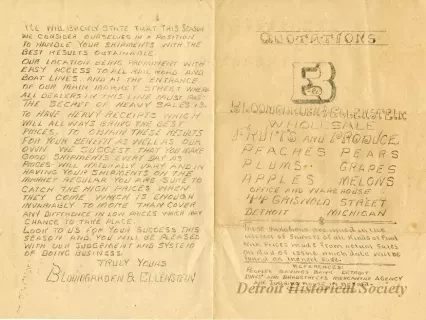 WE WILL BRIEFLY STATE THAT THIS SEASON
WE CONSIDER OURSELVES IN A POSITION
TO HANDLE YOUR SHIPMENTS WITH THE
BEST RESULTS OBTAINABLE.
OUR LOCATION BEING PROMINENT WITH
EASY ACCESS TO ALL RAIL ROAD AND
BOAT LINES. AND AT THE ENTRANCE
OF OUR MAIN MARKET STREET WHERE
ALL DEALERS IN THIS LINE MUST
THE SECRET OF HEAVY SALES IS
TO HAVE HEAVY RECEIPTS WHICH
WILL ALWAYS BRING THE BEST
PRICES, TO OBTAIN THESE RESULTS
FOR YOUR BENEFIT AS WELL AS OUR
OWN. WE SUGGEST THAT YOU MAKE
GOOD SHIPMENTS EVERY DAY AS
PRICES WILL NATURALLY VARY AND IN
HAVING YOUR SHIPMENTS ON THE
MARKET REGULAR YOU ARE SURE TO
CATCH THE HIGH PRICES WHEN
THEY COME WHICH IS ENOUGH
INVARIABLY TO MORE THAN COVER
ANY DIFFERENCE IN LOW PRICES WHICH MAY
CHANCE TO TAKE PLACE.
LOOK TO US FOR YOUR SUCCESS THIS
SEASON AND YOU WILL BE PLEASED
WITH OUR JUDGEMENT AND SYSTEM
OF DOING BUSINESS.
TRULY YOURS
BLOOMGARDEN & ELLENSTEIN
QUOTATIONS
B
BLOOMGARDEN & ELLENSTEIN
WHOLESALE
FRUITS AND PRODUCE
PEACHES PEARS
PLUMS GRAPES
APPLES MELONS
OFFICE AND WAREHOUSE
GRISWOLD STREET
DETROIT MICHIGAN
These Quotations are issued in the
interest of Shippers of all kinds of Fruit
Prices made from actual Sales
on day of issue which date will be
found on inside
REFERENCES:
PEOPLES SAVINGS BANK DETROIT
DUNS AND BRADSTREETS MERCANTILE AGENCY
Detroit Historical Society